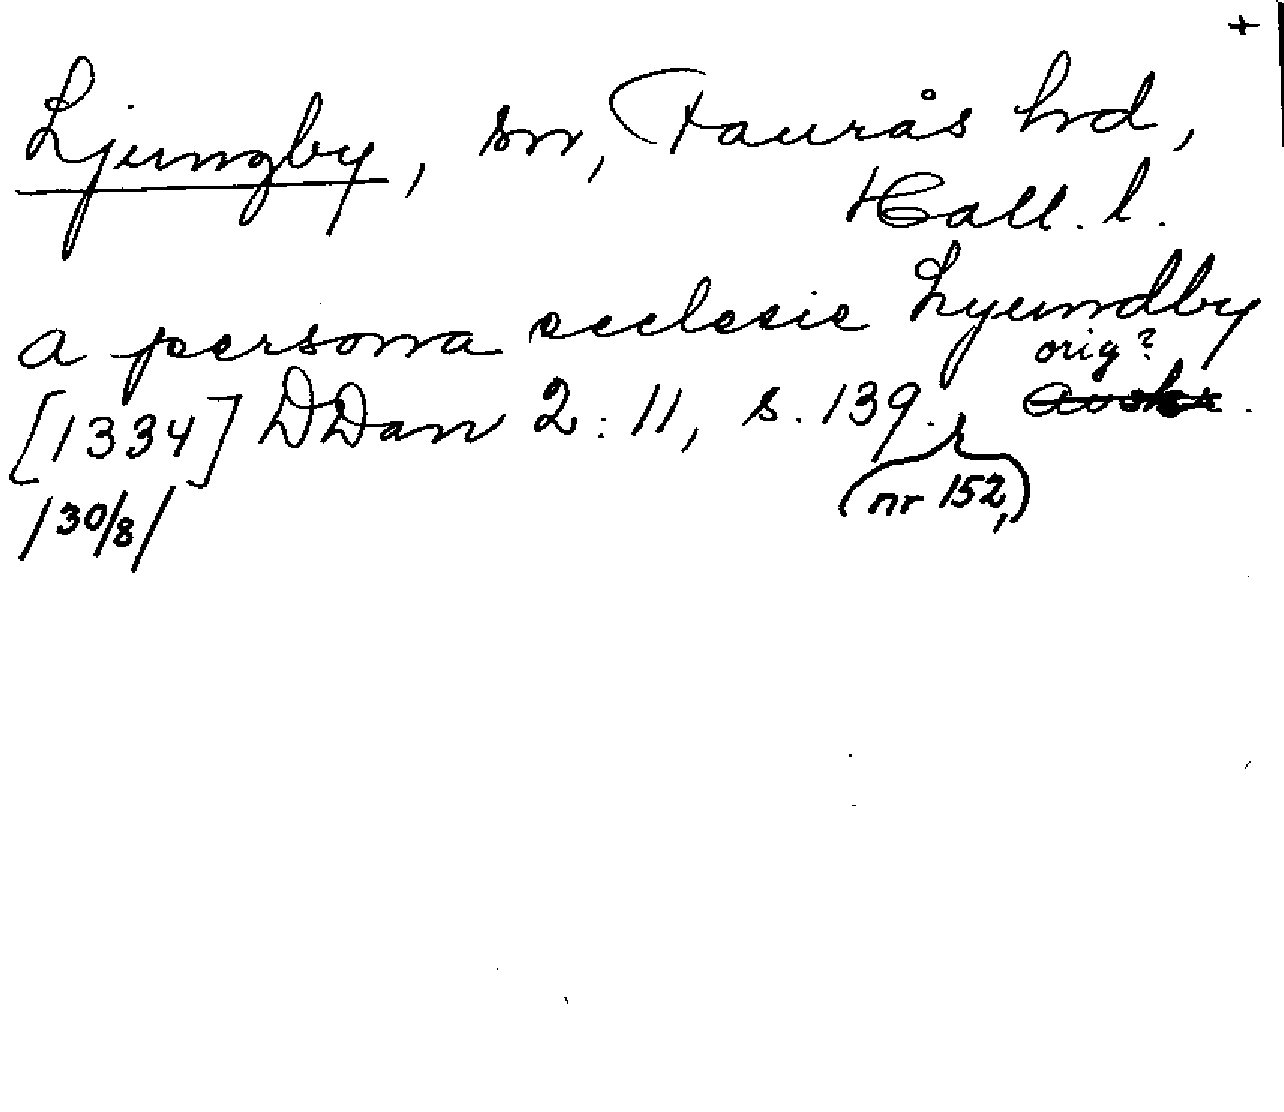 +
Ljungby, sn, Faurås hd,
Hall. l.
a persona ecclesie Lyundby
orig?
[1334] DDan 2:11, s. 139. avskr.
/30/8/ (nr 152,)